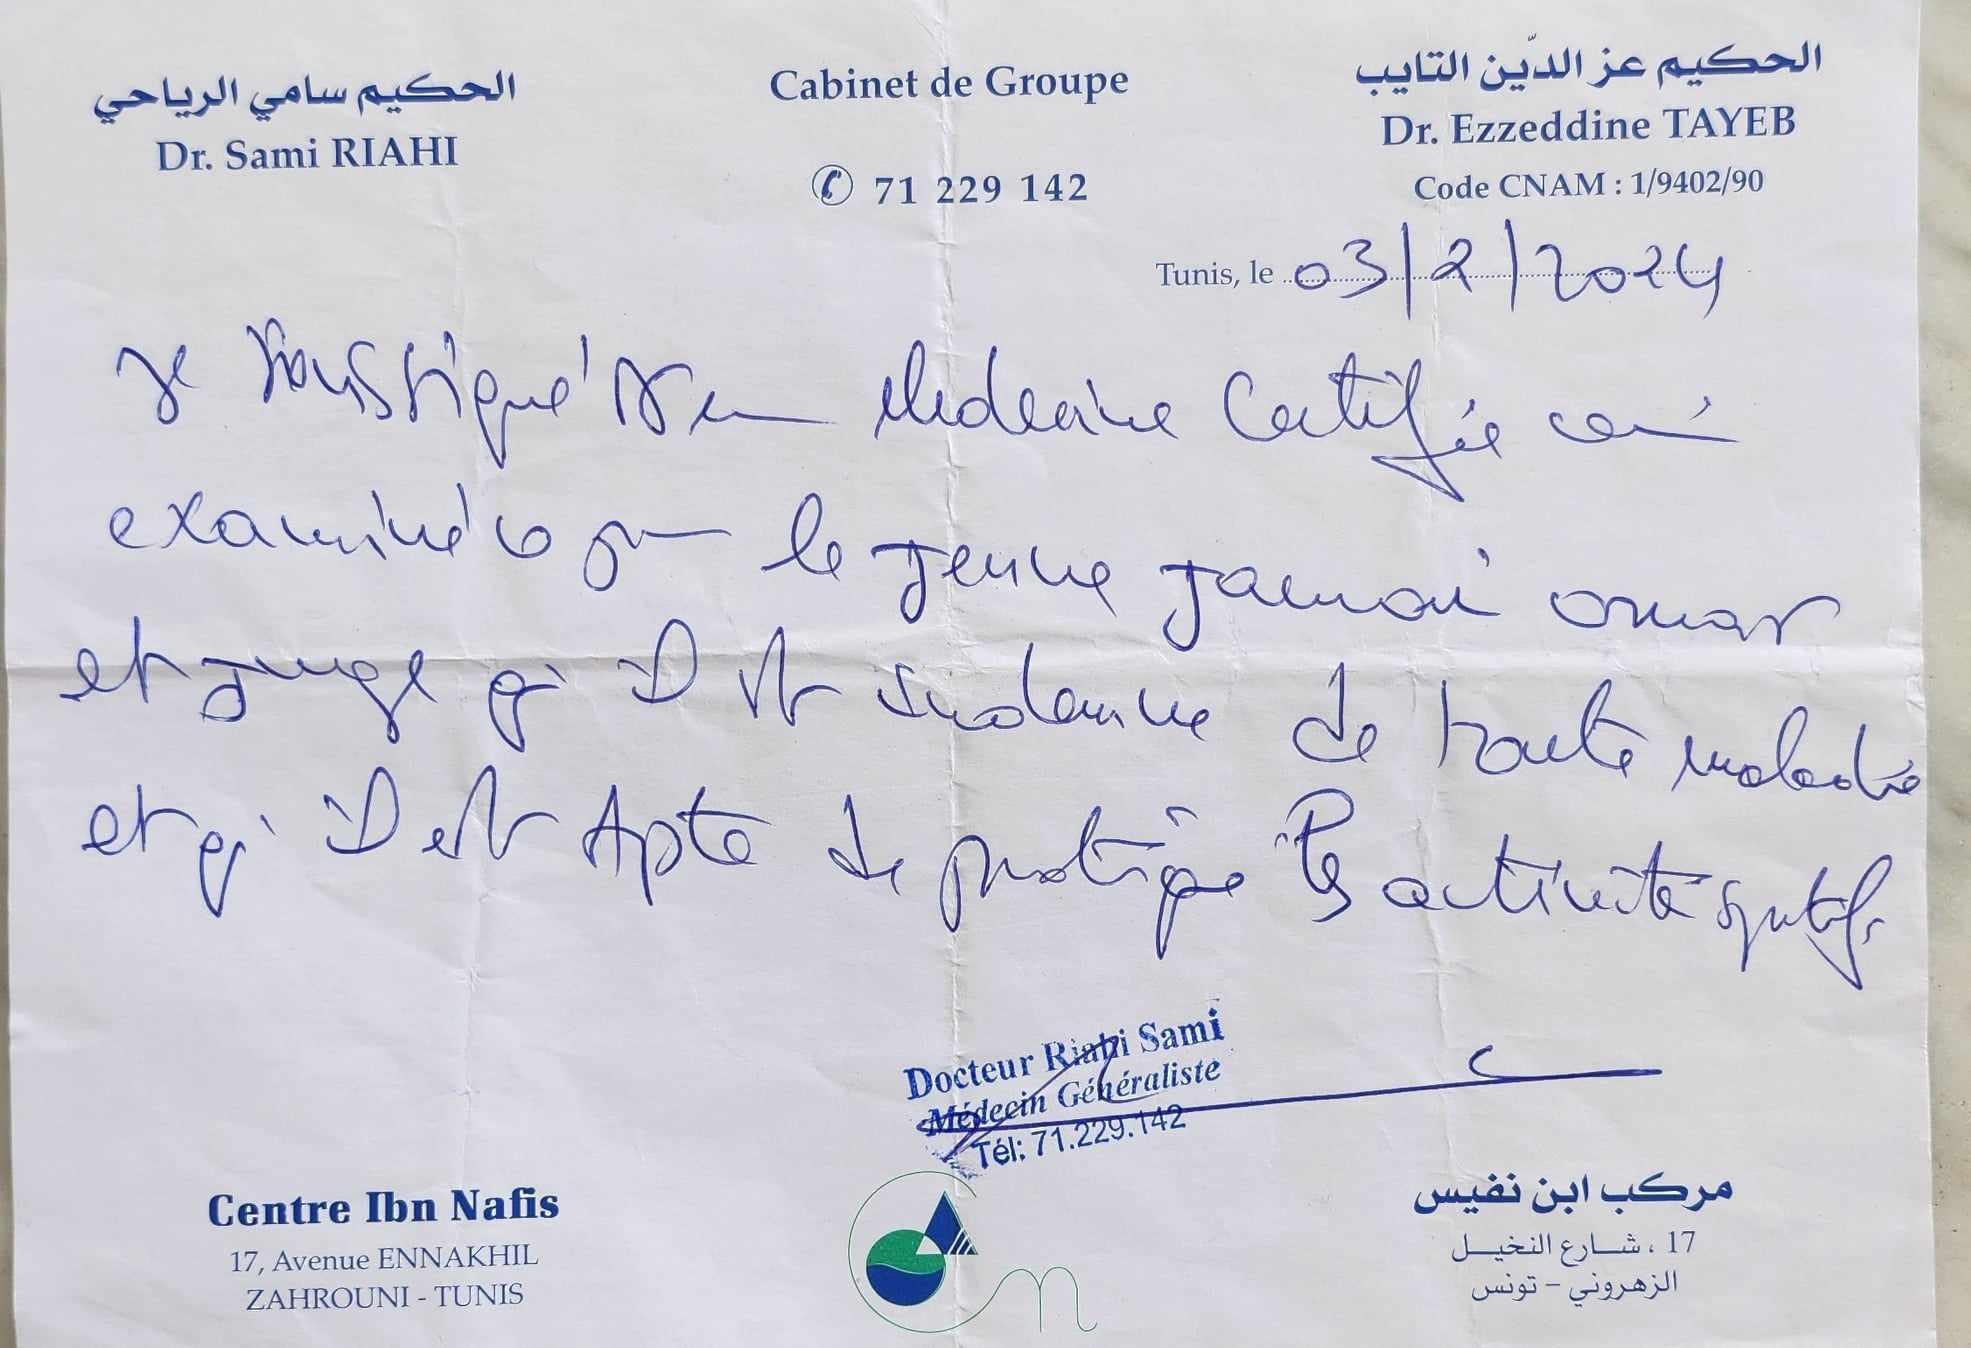 الحكيم سامي الرياحي
Dr. Sami RIAHI
Cabinet de Groupe
71 229 142
الحكيم عز الدّين التايب
Dr. Ezzeddine TAYEB
Code CNAM : 1/9402/90
Tunis, le 03/2/2024
Je soussigné Dr en Médecine Certifie
examiné ce jour le jeune omar
et juge qi il est indemne de toute maladie
et qi il est Apte de pratique les activité sportifs
Docteur Riahi Sami
Médecin Généraliste
Tél: 71.229.142
Centre Ibn Nafis
17, Avenue ENNAKHIL
ZAHROUNI - TUNIS
مركب ابن نفيس
17 ، شارع النخيل
الزهروني - تونس